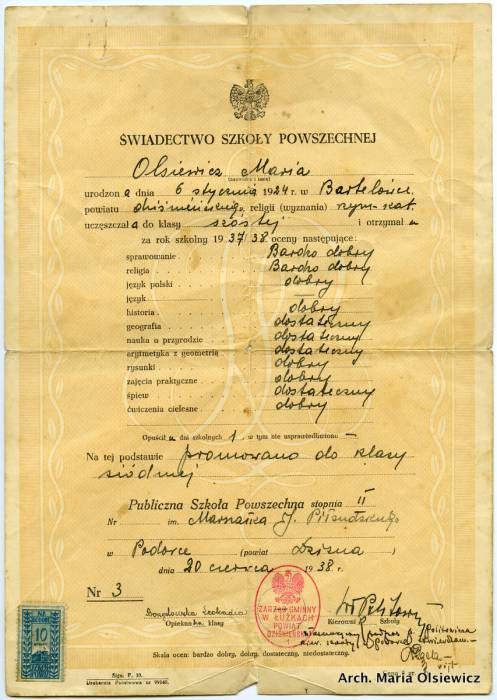 ŚWIADECTWO SZKOŁY POWSZECHNEJ
Olsiewicz Maria
(nazwisko i imię)
urodzona dnia 6 stycznia 1924 r. w
powiatu religii (wyznania) rzym-kat.
uczęszczała do klasy szóstej i otrzymała
za rok szkolny 1937/38 oceny następujące:
sprawowanie Bardzo dobry
religia Bardzo dobry
język polski dobry
język —
historia dobry
geografia dostateczny
nauka o przyrodzie dostateczny
arytmetyka z geometrią dostateczny
rysunki dobry
zajęcia praktyczne dobry
śpiew dostateczny
ćwiczenia cielesne dobry
Opuściła dni szkolnych 1, w tym nie usprawiedliwiono —
Na tej podstawie promowano do klasy
siódmej
Publiczna Szkoła Powszechna stopnia II
Nr im. Marszałka J. Piłsudskiego
w Podorce (powiat Dzisna)
dnia 20 czerwca 1938 r.
Nr 3
ZARZĄD GMINNY
W ŁUŻKACH
POWIAT
DZIŚNIEŃSKI
Opiekunka klasy
Kierownik Szkoły
Skala ocen: bardzo dobry, dobry, dostateczny, niedostateczny.
10
Arch. Maria Olsiewicz